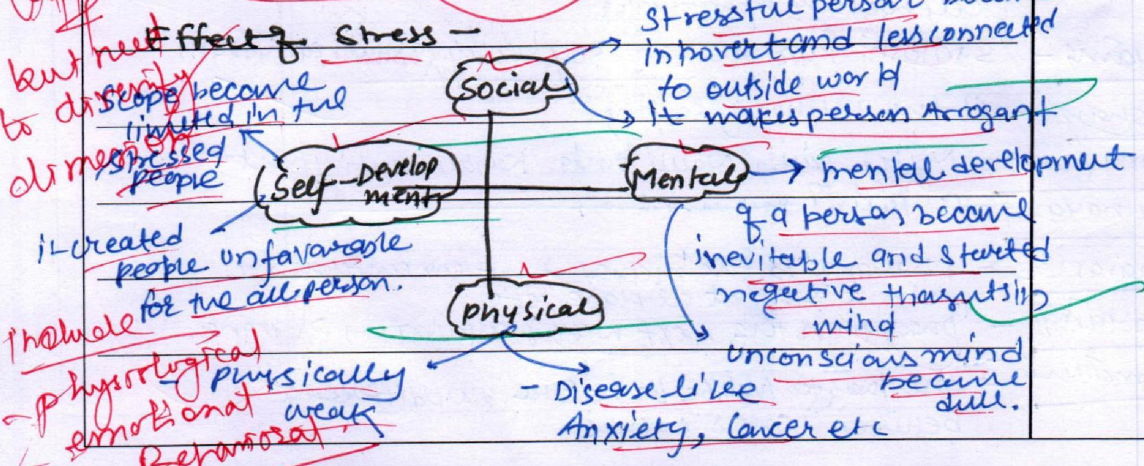 Effect of stress -
but need
to diversify
dimension
Social
Stressful person
introvert and less connected
to outside world
it makes person Arrogant
Scope become
limited in the
stressed
people
Self-Develop
ment
it created
people unfavarable
for the all person.
Mental
mental development
of a person became
inevitable and started
negative
mind
unconscious mind
became
dull.
Physical
- physically
weak
- Disease like
Anxiety, Cancer etc
include
- physiological
- emotional